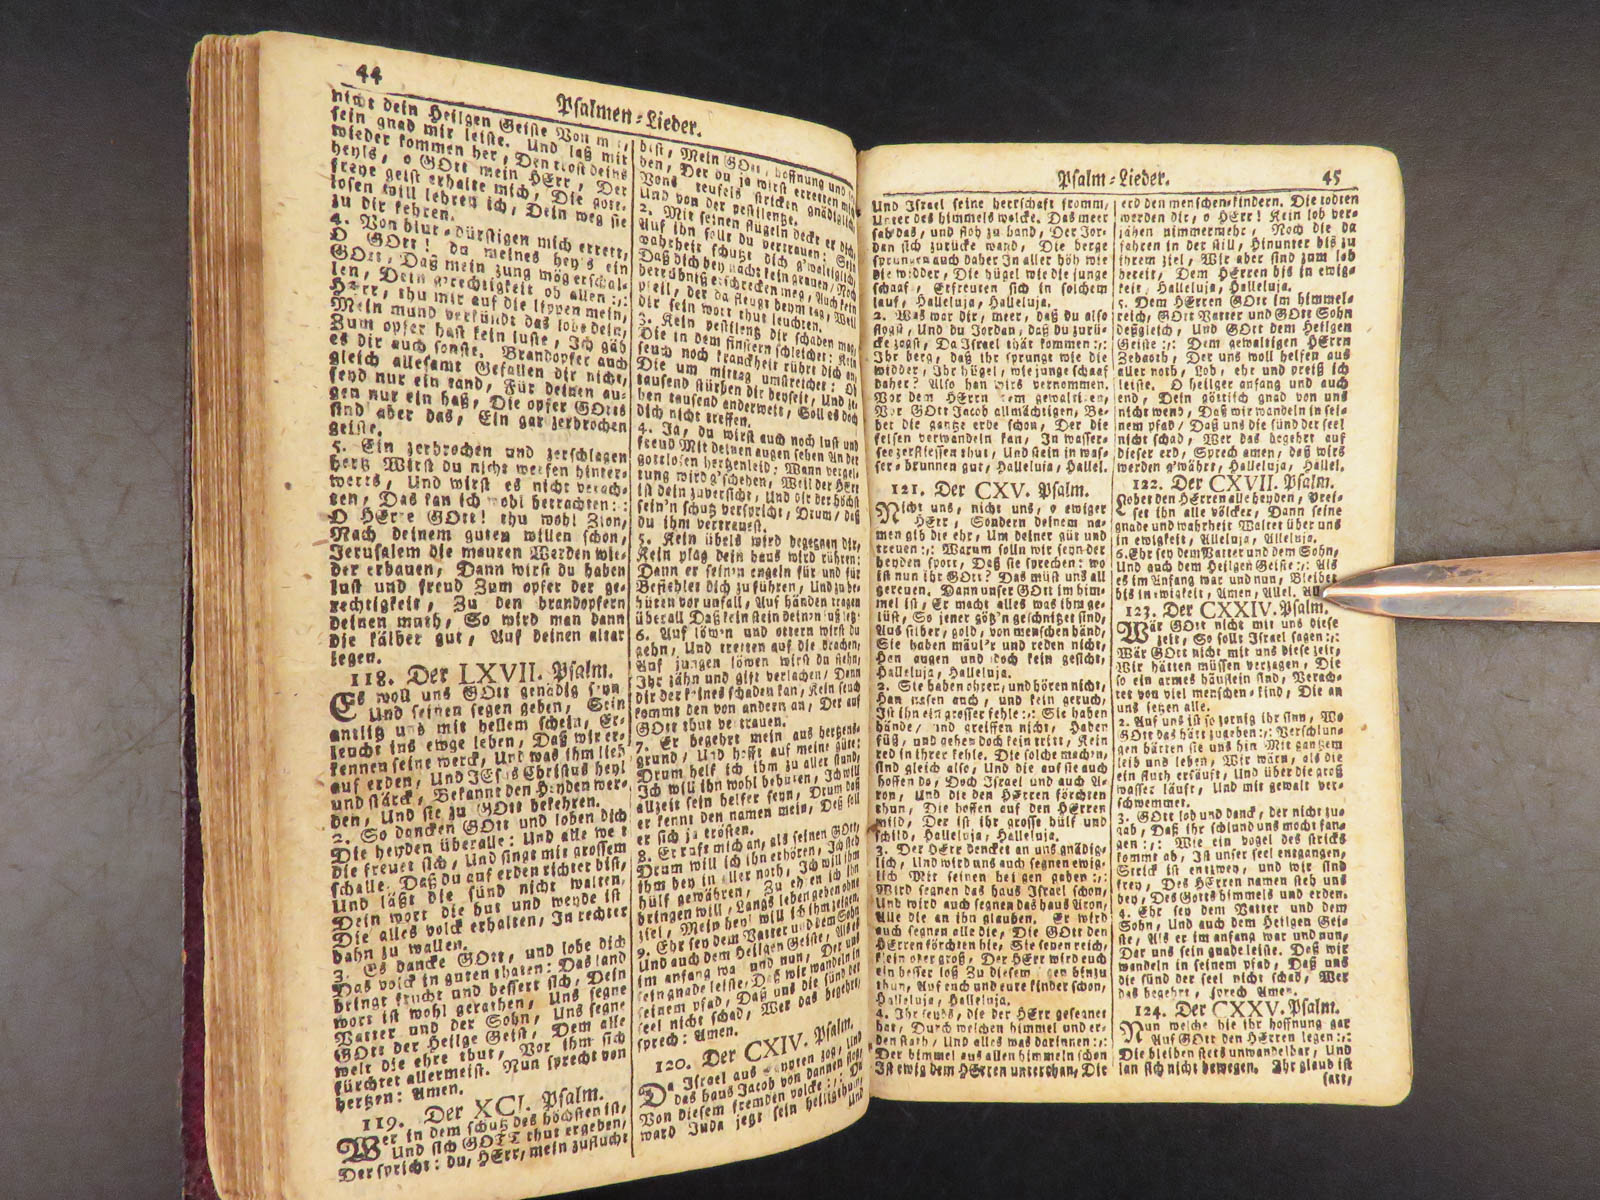 44
Psalmen-Lieder.
nicht dein Heilgen Geiste Von mir,
sein gnad mir leiste. Und laß mir
wieder kommen her, Den trost deins
heyls, o GOtt mein HErr, Der
freye geist erhalte mich, Die gott-
losen will lehren ich, Dein weg sie
zu dir kehren.
4. Von blut-dürstigen mich errett,
O GOtt! du meines heyls ein
GOtt, Daß mein zung mög erschal-
len, Dein gerechtigkeit ob allen :,:
HErr, thu mir auf die lippen mein,
Mein mund verkündt das lobe dein,
Zum opfer hast kein luste, Ich gäb
es dir auch sonste. Brandopfer auch
gleich allesamt Gefallen dir nicht,
seynd nur ein tand, Für deinen au-
gen nur ein haß, Die opfer GOtts
sind aber das, Ein gar zerbrochen
geiste.
5. Ein zerbrochen und zerschlagen
hertz Wirst du nicht werfen hinter-
werts, Und wirst es nicht verach-
ten, Das kan ich wohl betrachten: :
O HErre GOtt! thu wohl Zion,
Nach deinem guten willen schon,
Jerusalem die mauren Werden wie-
der erbauen, Dann wirst du haben
lust und freud Zum opfer der ge-
rechtigkeit, Zu den brandopfern
deinen muth, So wird man dann
die kälber gut, Auf deinen altar
legen.
118. Der LXVII. Psalm.
Es woll uns GOtt genädig seyn
Und seinen segen geben, Sein
antlitz uns mit hellem schein, Er-
leucht ins ewge leben, Daß wir er-
kennen seine werck, Und was ihm lieb
auf erden, Und JEsus Christus heyl
und stärck, Bekannt den Heyden wer-
den, Und sie zu GOtt bekehren.
2. So dancken GOtt und loben dich
Die heyden überalle: Und alle welt
die freuet sich, Und singt mit grossem
schalle, Daß du auf erden richter bist,
Und läßt die sünd nicht walten,
Dein wort die hut und weyde ist
Die alles volck erhalten, In rechter
bahn zu wallen.
3. Es dancke GOtt, und lobe dich
Das volck in guten thaten: Das land
bringt frucht und bessert sich, Dein
wort ist wohl gerathen, Uns segne
Vatter und der Sohn, Uns segne
GOtt der Heilge Geist, Dem alle
welt die ehre thut, Vor ihm sich
fürchtet allermeist. Nun sprecht von
hertzen: Amen.
119. Der XCI. Psalm.
Wer in dem schutz des höchsten ist,
Und sich GOTT thut ergeben,
Der spricht: du, HErr, mein zuflucht
bist, Mein GOtt, hoffnung und
ben, Der du ja wirst erretten mich
Vons teufels stricken gnädiglich
Und von der pestilentze.
2. Mit seinen flügeln deckt er dich,
Auf ihn sollt du vertrauen: Sein
wahrheit schützt dich g'waltiglich,
Daß dich bey nacht kein grauen, Noch
betrübniß erschrecken meg, Auch kein
pfeil, der da fleugt beym tag, Weil
dir sein wort thut leuchten.
3. Kein pestilentz dir schaden mag,
Die in dem finstern schleichet: Kein
seuch noch kranckheit rührt dich an,
Die um mittag umstreichet: Ob
tausend stürben dir beyseit, Und ze-
hen tausend anderweit, Soll es doch
dich nicht treffen.
4. Ja, du wirst auch noch lust und
freud Mit deinen augen sehen An der
gottlosen hertzenleid; Wann vergel-
tung wird g'schehen, Weil der HErr
ist dein zuversicht, Und dir der höchst
sein'n schutz verspricht, Drum, daß
du ihm vertreuest.
5. Kein übels wird begegnen dir,
Kein plag dein haus wird rühren:
Dann er sein'n engeln für und für
Befiehlet dich zu führen, Und zu be-
hüten vor unfall, Auf händen tragen
überall Daß kein stein
6. Auf löw'n und ottern wirst du
gehn, Und tretten auf die drachen,
Auf jungen löwen wirst du stehn,
Ihr zähn und gift verlachen, Dann
dir der keines schaden kan, Kein seuch
kommt den von andern an, Der auf
GOtt thut vertrauen.
7. Er begehrt mein aus hertzens-
grund, Und hofft auf meine güte:
Drum helf ich ihm zu aller stund,
Ich will ihn wohl behuten, Ich will
allzeit sein helfer seyn, Drum daß
er kennt den namen mein, Deß soll
er sich ja trösten.
8. Er ruft mich an, als seinen GOtt,
Drum will ich ihn erhören, Ich steh
ihm bey in aller noth, Ich will ihm
hülf gewähren, Zu ehren ich ihn
bringen will, Langs leben geben ohne
ziel, Mein heyl will ich ihm zeigen.
9. Ehr sey dem Vatter und dem Sohn
Und auch dem Heiligen Geiste, Als es
im anfang war und nun, Der uns
sein gnade leiste, Daß wir wandeln in
seinem pfad, Daß uns die sünd der
seel nicht schad, Wer das begehrt,
sprech: Amen.
120. Der CXIV. Psalm.
Da Israel aus Egypten zog, Und
das haus Jacob von dannen floge
Von diesem fremden volcke:,: Da
ward Juda jetzt sein heiligthum,
und
Psalm-Lieder. 45
Und Israel seine herrschaft fromm,
Unter des himmels wolcke. Das meer
sah das, und floh zu hand, Der Jor-
dan sich zurücke wand, Die berge
sprungen auch daher In aller höh wie
die widder, Die hügel wie die junge
schaaf, Erfreuten sich in solchem
lauf, Halleluja, Halleluja.
2. Was war dir, meer, daß du also
flogst, Und du Jordan, daß du zurü-
cke zogst, Da Israel thät kommen:,:
Ihr berg, daß ihr sprunge wie die
widder, Ihr hügel, wie junge schaaf
daher? Also han wirs vernommen.
Vor dem HErrn dem gewaltigen,
Vor GOtt Jacob allmächtigen, Be-
bet die gantze erde schon, Der die
felsen verwandeln kan, In wasser-
see zerfliessen thut, Und stein in was-
ser-brunnen gut, Halleluja, Hallel.
121. Der CXV. Psalm.
Nicht uns, nicht uns, o ewiger
HErr, Sondern deinem na-
men gib die ehr, Um deiner güt und
treuen:,: Warum solln wir seyn der
heyden spott, Daß sie sprechen: wo
ist nun ihr GOtt? Das müst uns all
gereuen. Dann unser GOtt im him-
mel ist, Er macht alles was ihm ge-
lüst, So jener götz'n geschnitzet sind,
Aus silber, gold, von menschen händ,
Sie haben mäul'r und reden nicht,
Han augen und doch kein gesicht,
Halleluja, Halleluja.
2. Sie haben ohren, und hören nicht,
Han nasen auch, und kein geruch,
Ist ihn ein grosser fehle:,: Sie haben
hände, und greiffen nicht, Haben
füß, und gehen doch kein tritt, Kein
red in ihrer kehle. Die solche machen,
sind gleich also, Und die auf sie auch
hoffen da, Doch Israel und auch A-
ron, Und die den HErren förchten
thun, Die hoffen auf den HErren
mild, Der ist ihr grosse hülf und
schild, Halleluja, Halleluja.
3. Der HErr dencket an uns gnädig-
lich, Und wird uns auch segnen ewig-
lich Mit seinen heilgen gaben:,:
Wird segnen das haus Israel schon,
Und wird auch segnen das haus Aron,
Alle die an ihn glauben. Er wird
auch segnen alle die, Die GOtt den
HErren förchten hie, Sie seyen reich,
klein oder groß, Der HErr wird euch
ein besser loß Zu diesem segen hinzu
thun, Auf euch und eure kinder schon,
Halleluja, Halleluja.
4. Ihr seyds, die der HErr gesegnet
hat, Durch welchen himmel und er-
den staht, Und alles was darinnen:,:
Der himmel aus allen himmeln schon
Ist ewig dem HErren unterthan, Die
erd den menschen-kindern. Die todten
werden dir, o HErr! Kein lob ver-
jähen nimmermehr, Noch die da
fahren in der still, Hinunter bis zu
ihrem ziel, Wir aber sind zum lob
bereit, Dem HErren bis in ewig-
keit, Halleluja, Halleluja.
5. Dem HErren GOtt im himmel-
reich, GOtt Vatter und GOtt Sohn
deßgleich, Und GOtt dem Heilgen
Geiste:,: Dem gewaltigen HErrn
Zebaoth, Der uns woll helfen aus
aller noth, Lob, ehr und preiß ich
leiste. O heilger anfang und auch
end, Dein göttlich gnad von uns
nicht wend, Daß wir wandeln in sei-
nem pfad, Daß uns die sünd der seel
nicht schad, Wer das begehrt auf
dieser erd, Sprech amen, daß wirs
werden g'währt, Halleluja, Hallel.
122. Der CXVII. Psalm.
Lobet den HErren alle heyden, Prei-
set ihn alle völcker, Dann seine
gnade und wahrheit Waltet über uns
in ewigkeit, Alleluja, Alleluja.
6. Ehr sey dem Vatter und dem Sohn,
Und auch dem Heiligen Geiste:,: Als
es im Anfang war und nun, Bleibet
bis in ewigkeit, Amen, Allel.
123. Der CXXIV. Psalm.
Wär GOtt nicht mit uns diese
zeit, So sollt Israel sagen:,:
Wär GOtt nicht mit uns diese zeit,
Wir hätten müssen verzagen, Die
so ein armes häuflein sind, Verach-
tet von viel menschen-kind, Die an
uns setzen alle.
2. Auf uns ist so zornig ihr sinn, Wo
GOtt das hätt zugeben:,: Verschlun-
gen hätten sie uns hin Mit gantzem
leib und leben, Wir wärn, als die
ein fluth ersäuft, Und über die groß
wasser läuft, Und mit gewalt ver-
schwemmet.
3. GOtt lob und danck, der nicht zu-
gab, Daß ihr schlund uns mocht fan-
gen:,: Wie ein vogel des stricks
kommt ab, Ist unser seel entgangen,
Strick ist entzwey, und wir sind
frey, Des HErren namen steh uns
bey, Des Gotts himmels und erden.
4. Ehr sey dem Vatter und dem
Sohn, Und auch dem Heilgen Gei-
ste, Als er im anfang war und nun,
Der uns sein gnade leiste. Deß wir
wandeln in seinem pfad, Daß uns
die sünd der seel nicht schad, Wer
das begehrt, sprech Amen.
124. Der CXXV. Psalm.
Nun welche hie ihr hoffnung gar
Auf GOtt den HErren legen:,:
Die bleiben stets unwandelbar, Und
lan sich nicht bewegen. Ihr glaub ist
satt,